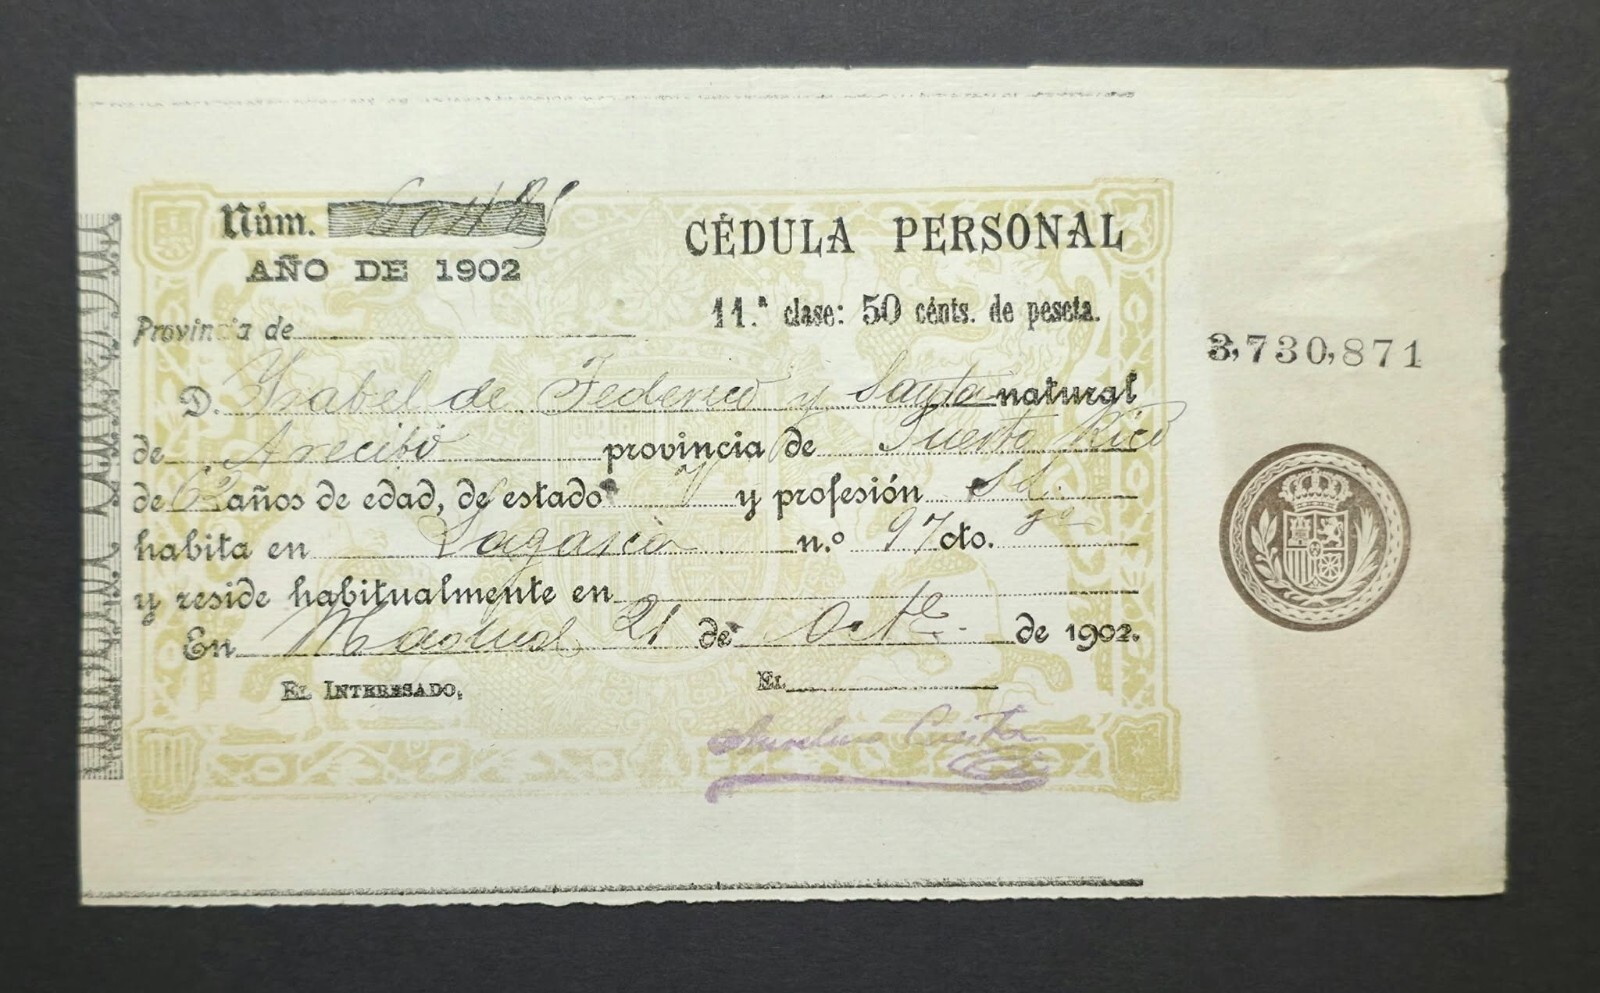 Núm. 60485
AÑO DE 1902
CÉDULA PERSONAL
11.ª clase: 50 cénts. de peseta.
Provincia de
3,730,871
D. Ysabel de Federico y natural
de Arecibo provincia de Puerto Rico
de 63 años de edad, de estado V y profesión
habita en Lagasca n.º 97 cto.
y reside habitualmente en
En Madrid 21 de Octe de 1902.
EL INTERESADO,
EL